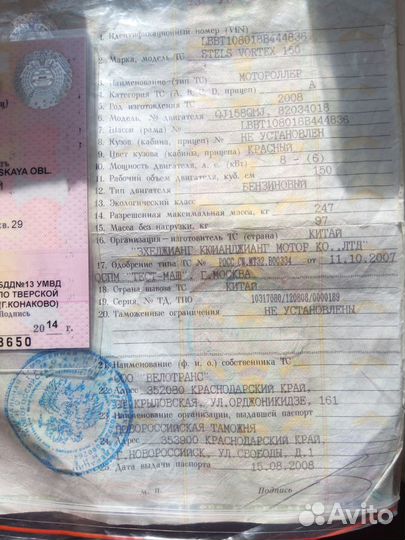 SKAYA OBL.
кв. 29
БДД№13 УМВД
ПО ТВЕРСКОЙ
(Г.КОНАКОВО)
Подпись
2014 г.
3650
1. Идентификационный номер (VIN) LBBT108018B444836
2. Марка, модель ТС STELS VORTEX 150
3. Наименование (тип ТС) МОТОРОЛЛЕР
4. Категория ТС (А, В, С, D, прицеп) А
5. Год изготовления ТС 2008
6. Модель, № двигателя QJ158QMJ, 82034018
7. Шасси (рама) № LBBT108018B444836
8. Кузов (кабина, прицеп) № НЕ УСТАНОВЛЕН
9. Цвет кузова (кабины, прицепа) КРАСНЫЙ
10. Мощность двигателя, л. с. (кВт) 8 - (6)
11. Рабочий объем двигателя, куб. см 150
12. Тип двигателя БЕНЗИНОВЫЙ
13. Экологический класс
14. Разрешенная максимальная масса, кг 247
15. Масса без нагрузки, кг 97
16. Организация – изготовитель ТС (страна) КИТАЙ
"ЗХЕДЖИАНГ ККИАНДЖИАНГ МОТОР КО.,ЛТД"
17. Одобрение типа ТС № РОСС CN.МТ32.В00334 от 11.10.2007
ОСПМ "ТЕСТ-МАШ", Г.МОСКВА
18. Страна вывоза ТС КИТАЙ
19. Серия, № ТД, ТПО 10317060/120808/0000189
20. Таможенные ограничения НЕ УСТАНОВЛЕНЫ
21. Наименование (ф. и. о.) собственника ТС
ООО "ВЕЛОТРАНС"
22. Адрес 352080 КРАСНОДАРСКИЙ КРАЙ,
КРИЛОВСКАЯ, УЛ.ОРДЖОНИКИДЗЕ, 161
23. Наименование организации, выдавшей паспорт
НОВОРОССИЙСКАЯ ТАМОЖНЯ
24. Адрес 353900 КРАСНОДАРСКИЙ КРАЙ,
Г.НОВОРОССИЙСК, УЛ.СВОБОДЫ, Д.1
25. Дата выдачи паспорта 15.08.2008
М. П. Подпись
Avito